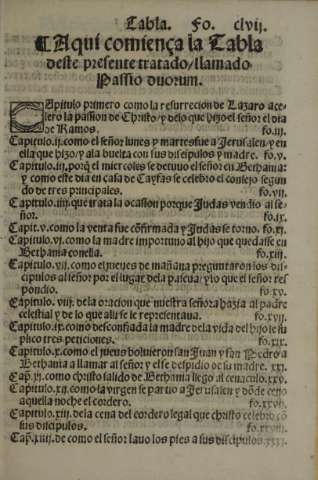 Tabla. Fo. clvij.
¶Aqui comiença la Tabla
deste presente tratado/llamado
Passio duorum.
Capitulo primero como la resurrecion de Lazaro ace-
lero la passion de Christo/y delo que hizo el señor el dia
de Ramos. fo.iij.
Capitulo.ij.como el señor lunes y martes fue a Jerusalen/y en
ella que hizo/y ala buelta con sus discipulos y madre. fo.v.
Capitulo.iij.porq̃ el miercoles se detuuo el señor en Bethania:
y como este dia en casa de Cayfas se celebro el consejo segun
do de tres principales. fo.vij.
Capitulo.iiij.que trata la ocasion porque Judas vendio al se-
ñor. fo.ix.
Capit.v.como la venta fue cõfirmada y Judas se torno. fo.xj.
Capitulo.vj.como la madre importuno al hijo que quedasse en
Bethania conella. fo.xiij.
Capitulo.vij.como el jueues de mañana preguntaron los dis-
cipulos al señor por el lugar dela pascua/y lo que el señor res
pondio. fo.xv.
Capitulo.viij.dela oracion que nuestra señora hazia al padre
celestial y de lo que alli se le representaua. fo.xvij.
Capitulo.ix.como desconfiada la madre dela vida del hijo le su
plico tres peticiones. fo.xix.
Capitulo.x.como el jueues boluieron san Juan y san Pedro a
Bethania a llamar al señor y el se despidio de su madre. xxj.
Cap̃.xj.como christo salido de Bethania llego al cenaculo.xxv.
Capitulo.xij.como la virgen se partio a Jerusalen y dõde ceno
aquella noche el cordero. fo.xxvij.
Capitulo.xiij.dela cena del cordero legal que christo celebro cõ
sus discipulos. fo.
Cap̃.xiiij.de como el señor lauo los pies a sus discipulos.